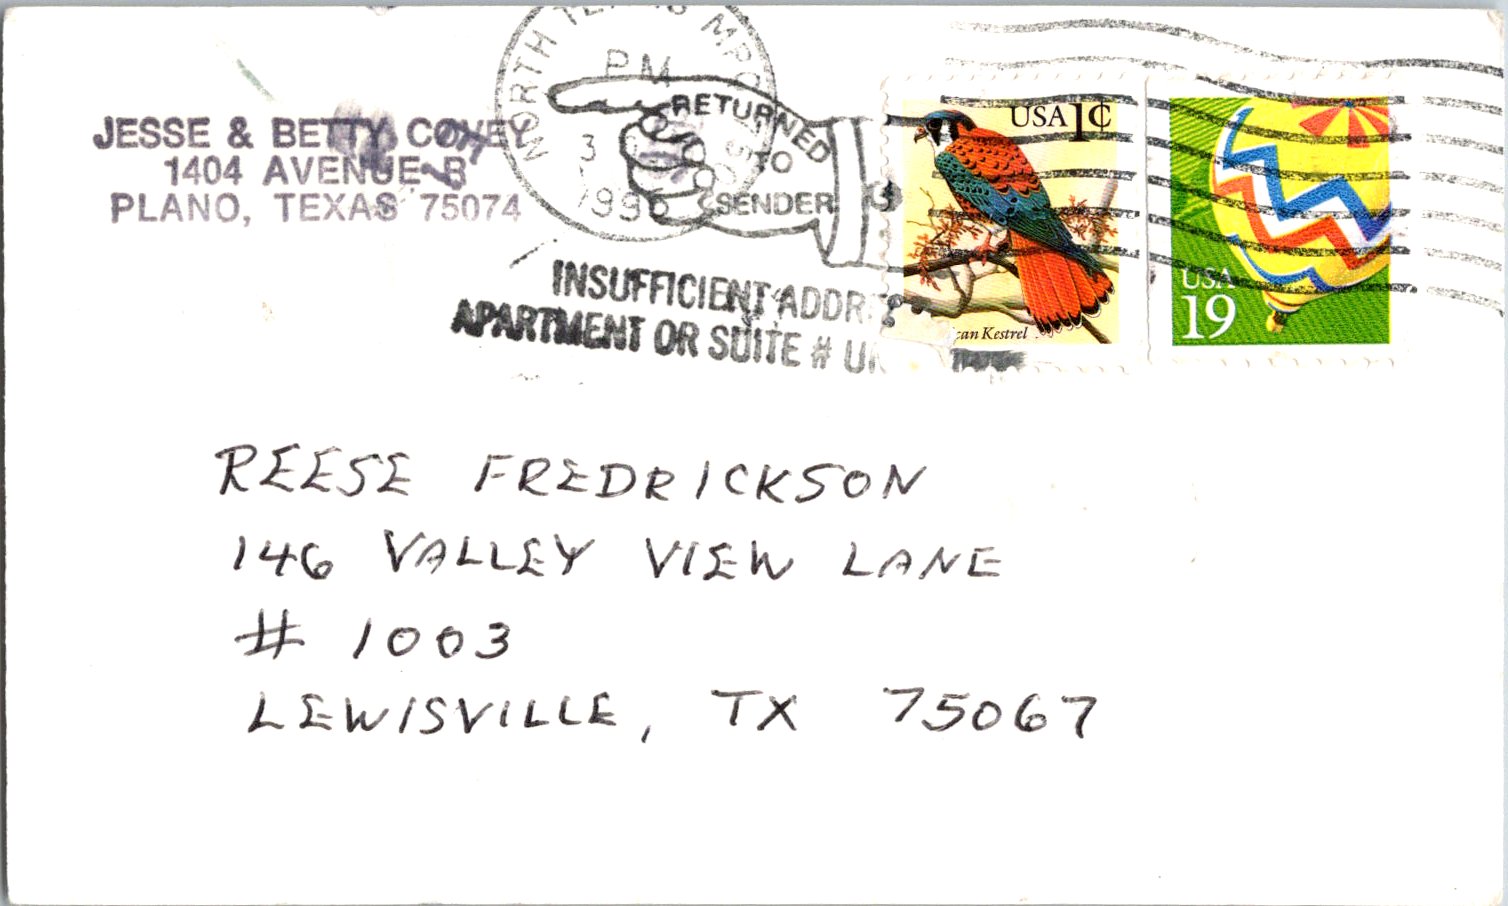 JESSE & BETTY COVEY
1404 AVENUE B
PLANO, TEXAS 75074
NORTH TEXAS
PM
RETURNED
TO
SENDER
INSUFFICIENT ADDRESS
APARTMENT OR SUITE #
USA 1¢
Kestrel
USA
19
REESE FREDRICKSON
146 VALLEY VIEW LANE
# 1003
LEWISVILLE, TX 75067